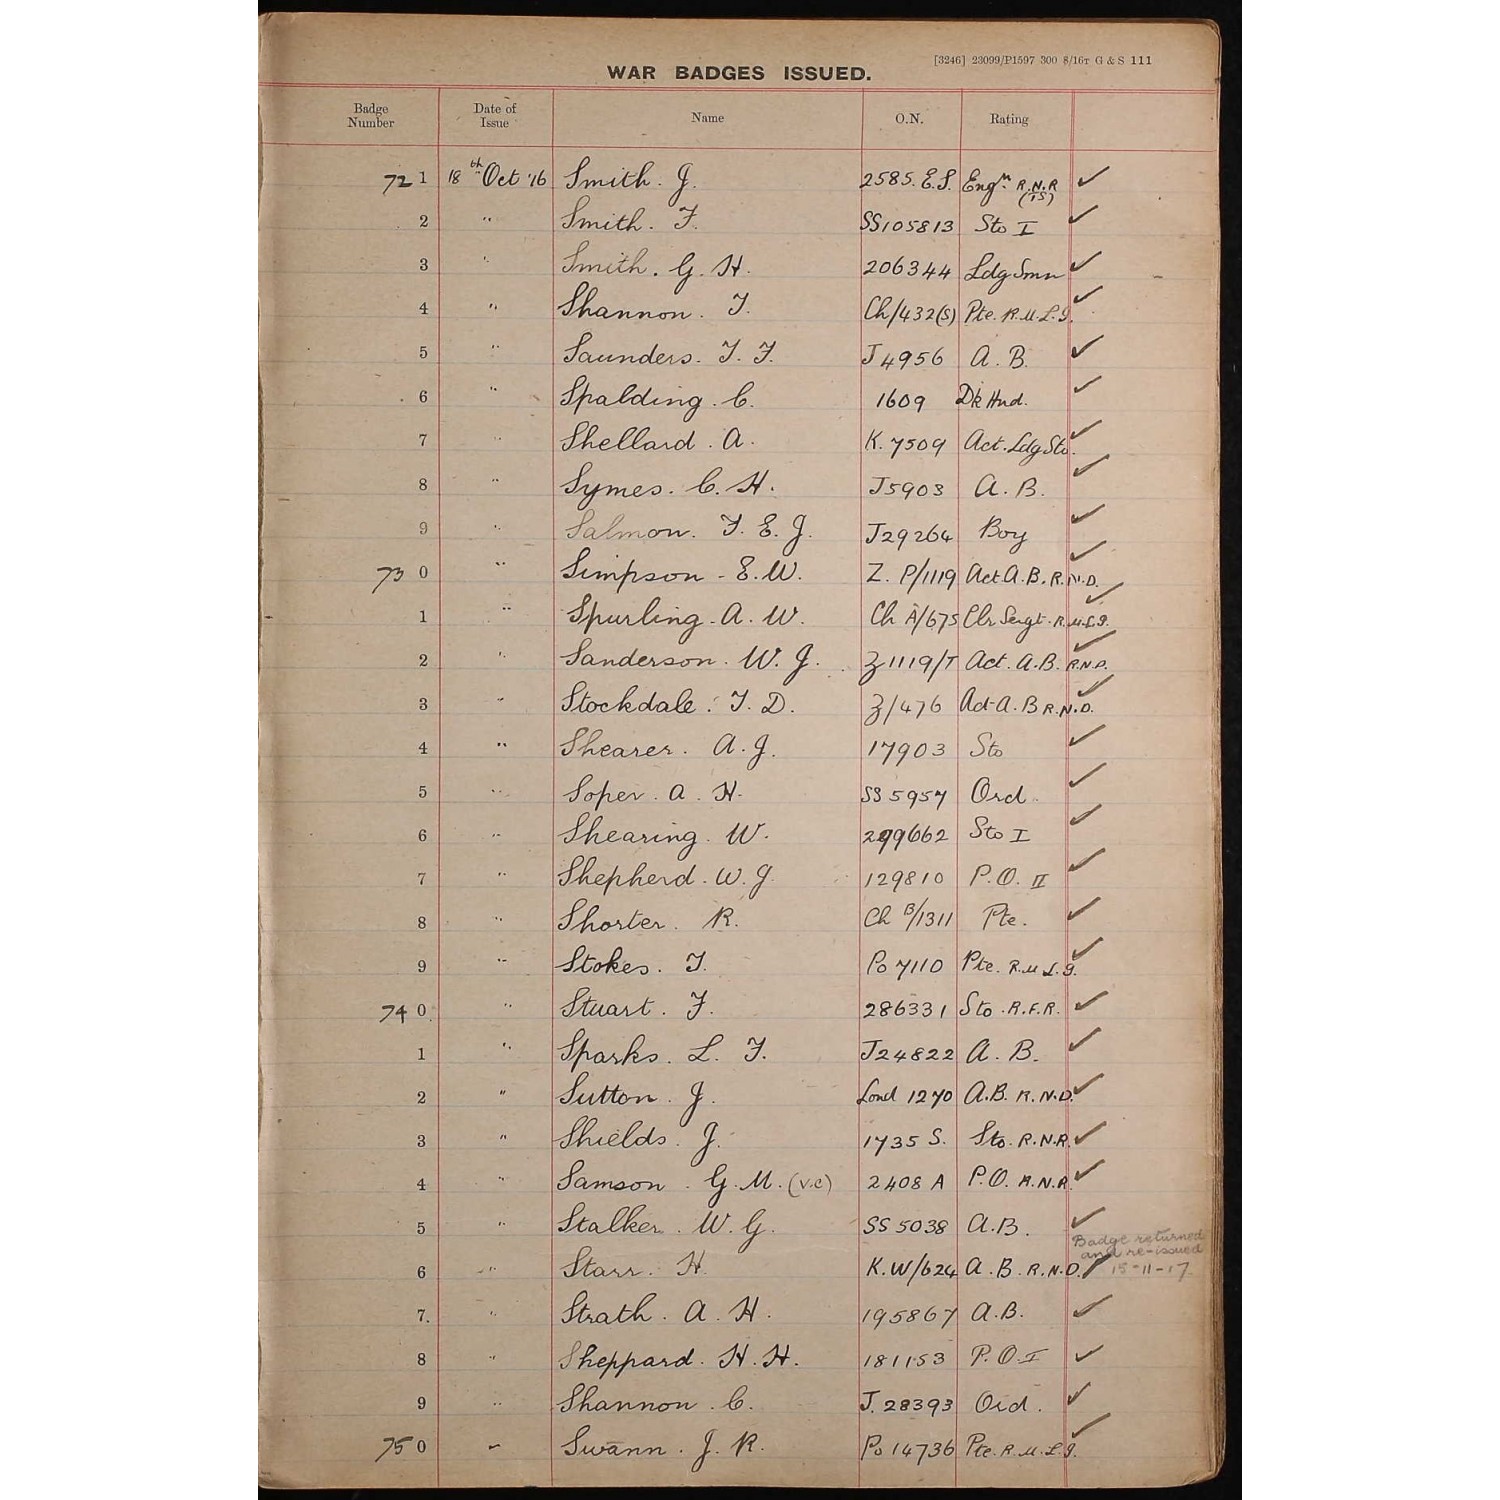 WAR BADGES ISSUED. [3246] 23099/P1597 300 8/16T G & S 111
Badge Number Date of Issue Name O.N. Rating
721 18th Oct '16 Smith. J. 2585. E.S. Engn. R.N.R (TS) ✓
2 " Smith. F. SS105813 Sto I ✓
3 " Smith. G. H. 206344 Ldg Smn ✓
4 " Shannon. T. Ch/432(S) Pte. R.M.L.I. ✓
5 " Saunders. T. F. J4956 A. B. ✓
6 " Spalding. C. 1609 Dk Hnd. ✓
7 " Shellard. A. K. 7509 Act. Ldg Sto. ✓
8 " Symes. C. H. J5903 A. B. ✓
9 " Salmon. F. E. J. J29264 Boy ✓
730 " Simpson - E. W. Z. P/1119 Act A.B. R.N.D. ✓
1 " Spurling. A. W. Ch A/675 Clr Sergt. R.M.L.I. ✓
2 " Sanderson. W. J. Z1119/T Act. A.B. R.N.D. ✓
3 " Stockdale. T. D. Z/476 Act A. B R.N.D. ✓
4 " Shearer. A. J. 17903 Sto ✓
5 " Soper. A. H. SS 5957 Ord. ✓
6 " Shearing. W. 299662 Sto I ✓
7 " Shepherd. W. J. 129810 P.O. II ✓
8 " Shorter. R. Ch B/1311 Pte. ✓
9 " Stokes. T. Po 7110 Pte. R.M.L.I. ✓
740 " Stuart. F. 286331 Sto. R.F.R. ✓
1 " Sparks. L. F. J24822 A. B. ✓
2 " Sutton. J. Lond 1270 A.B. R.N.D. ✓
3 " Shields. J. 1735 S. Sto. R.N.R. ✓
4 " Samson. G. M. (V.C) 2408 A P.O. R.N.R. ✓
5 " Stalker. W. G. SS 5038 A.B. ✓
Badge returned
and re-issued
6 " Starr. H. K.W/624 A. B. R.N.D. ✓ 15-11-17
7. " Strath. A. H. 195867 A.B. ✓
8 " Sheppard. H. H. 181153 P.O. I ✓
9 " Shannon. C. J. 28393 Ord. ✓
750 " Swann. J. R. Po 14736 Pte. R.M.L.I. ✓